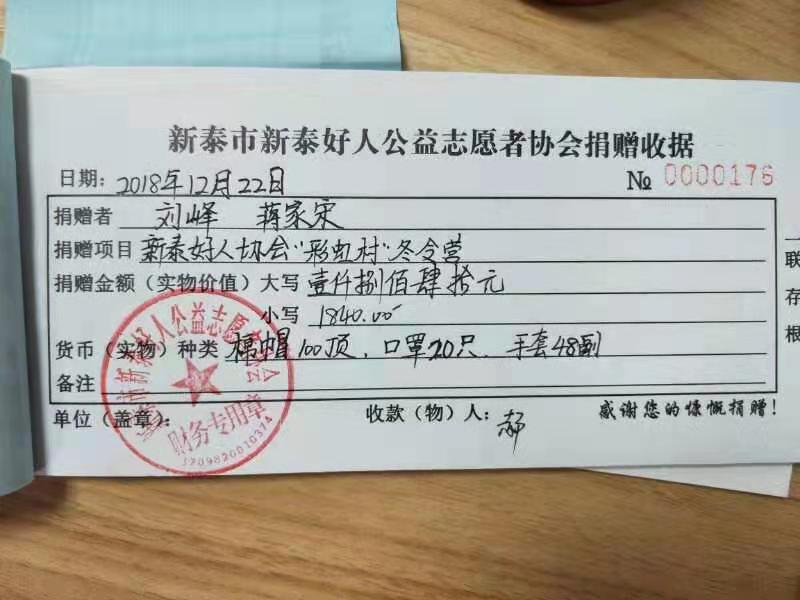 新泰市新泰好人公益志愿者协会捐赠收据
日期：2018年12月22日 № 0000176
捐赠者 刘峰 蒋家宋
捐赠项目 新泰好人协会"彩虹村"冬令营
捐赠金额（实物价值）大写 壹仟捌佰肆拾元
小写 1840.00
货币（实物）种类 棉帽100顶、口罩20只、手套48副
备注
单位（盖章）： 收款（物）人：郝 感谢您的慷慨捐赠！
新泰市新泰好人公益志愿者协会
财务专用章
3709820010374
联
存
根